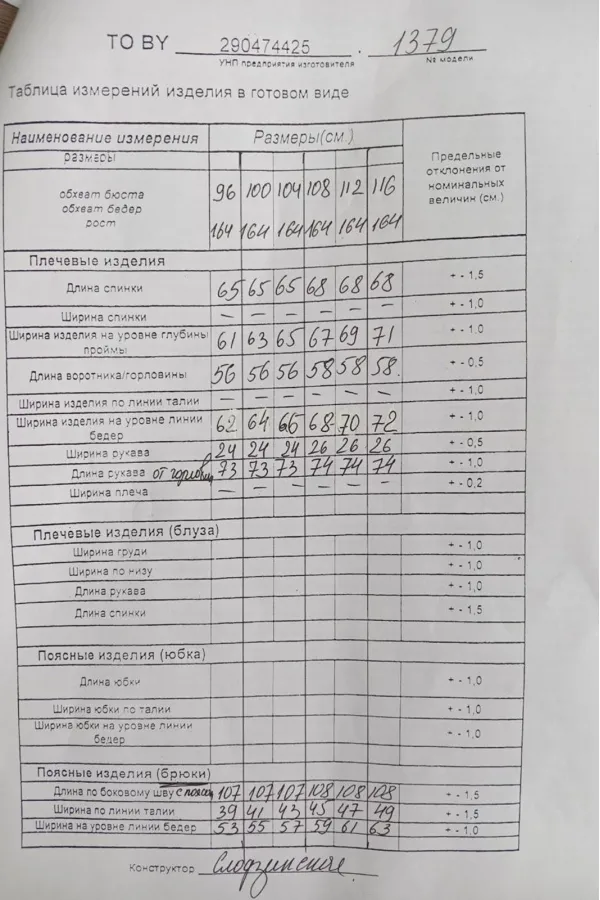 TO BY 290474425 . 1379
УНП предприятия изготовителя № модели
Таблица измерений изделия в готовом виде
Наименование измерения Размеры(см.) Предельные отклонения от номинальных величин (см.)
размеры
обхват бюста 96 100 104 108 112 116
обхват бедер
рост 164 164 164 164 164 164
Плечевые изделия
Длина спинки 65 65 65 68 68 68 + - 1,5
Ширина спинки — — — — — — + - 1,0
Ширина изделия на уровне глубины проймы 61 63 65 67 69 71 + - 1,0
Длина воротника/горловины 56 56 56 58 58 58. + - 0,5
Ширина изделия по линии талии — — — — — — + - 1,0
Ширина изделия на уровне линии бедер 62 64 66 68 70 72 + - 1,0
Ширина рукава 24 24 24 26 26 26 + - 0,5
Длина рукава от горловин 73 73 73 74 74 74 + - 1,0
Ширина плеча — — — — — — + - 0,2
Плечевые изделия (блуза)
Ширина груди + - 1,0
Ширина по низу + - 1,0
Длина рукава + - 1,0
Длина спинки + - 1,5
Поясные изделия (юбка)
Длина юбки + - 1,0
Ширина юбки по талии + - 1,0
Ширина юбки на уровне линии бедер + - 1,0
Поясные изделия (брюки)
Длина по боковому шву с поясом 107 107 107 108 108 108 + - 1,5
Ширина по линии талии 39 41 43 45 47 49 + - 1,5
Ширина на уровне линии бедер 53 55 57 59 61 63 + - 1,0
Конструктор